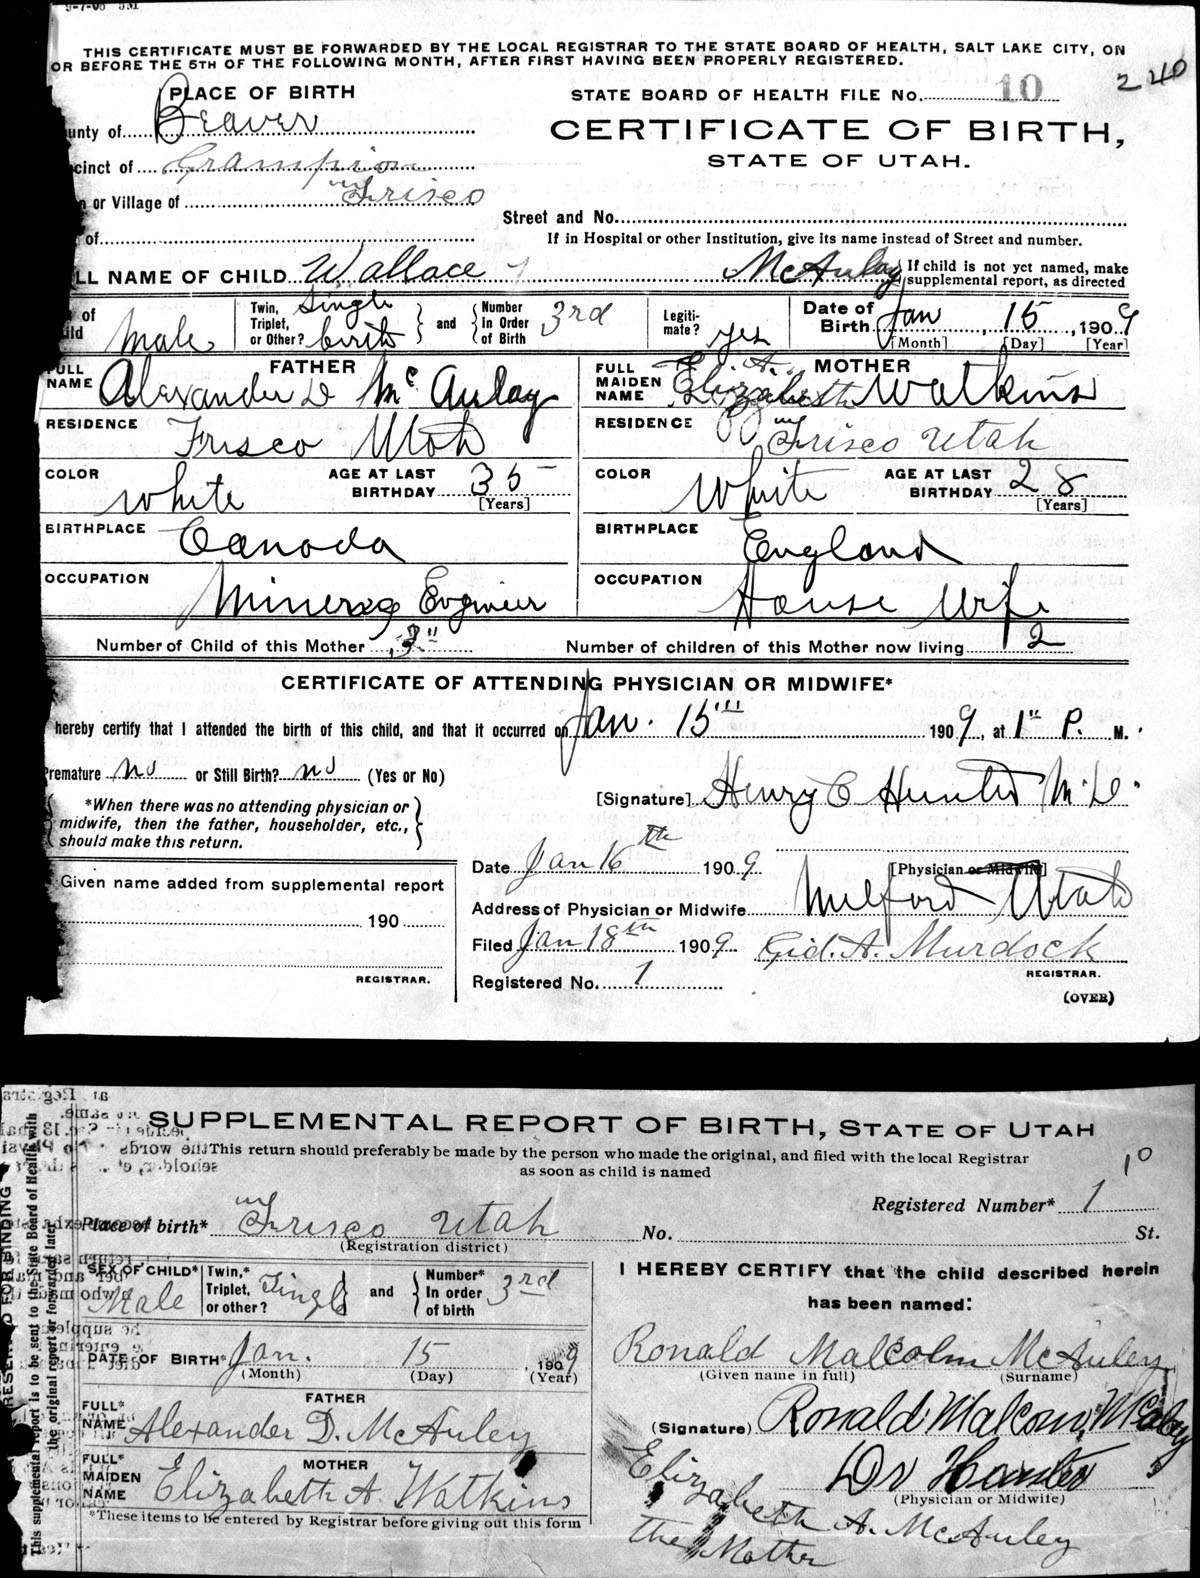 9-7-08 5M
THIS CERTIFICATE MUST BE FORWARDED BY THE LOCAL REGISTRAR TO THE STATE BOARD OF HEALTH, SALT LAKE CITY, ON
OR BEFORE THE 5TH OF THE FOLLOWING MONTH, AFTER FIRST HAVING BEEN PROPERLY REGISTERED.
240
PLACE OF BIRTH
STATE BOARD OF HEALTH FILE No. 10
unty of Beaver
CERTIFICATE OF BIRTH,
STATE OF UTAH.
cinct of Grampion
or Village of Frisco
Street and No.
of
If in Hospital or other Institution, give its name instead of Street and number.
LL NAME OF CHILD Wallace McAulay
If child is not yet named, make supplemental report, as directed
of ild Male
Twin, Triplet, or Other? Single birth and Number In Order of Birth 3rd
Legiti- mate? yes
Date of Birth Jan 15, 1909
[Month] [Day] [Year]
FATHER
FULL NAME Alexander D McAulay
MOTHER
FULL MAIDEN NAME E. A. Elizabeth Watkins
RESIDENCE Frisco Utah
RESIDENCE Frisco Utah
COLOR White AGE AT LAST BIRTHDAY 35 [Years]
COLOR White AGE AT LAST BIRTHDAY 28 [Years]
BIRTHPLACE Canada
BIRTHPLACE England
OCCUPATION Mining Engineer
OCCUPATION House Wife
Number of Child of this Mother 3" Number of children of this Mother now living 2
CERTIFICATE OF ATTENDING PHYSICIAN OR MIDWIFE*
hereby certify that I attended the birth of this child, and that it occurred on Jan. 15 1909, at 1 P. M.
Premature no or Still Birth? no (Yes or No)
*When there was no attending physician or midwife, then the father, householder, etc., should make this return.
[Signature] Henry C Hunter M.D.
[Physician or Midwife]
Date Jan 16th 1909
Address of Physician or Midwife Milford Utah
Filed Jan 18th 1909 Gid. A. Murdock
REGISTRAR.
Registered No. 1
(OVER)
Given name added from supplemental report
190
REGISTRAR.
SUPPLEMENTAL REPORT OF BIRTH, STATE OF UTAH
This return should preferably be made by the person who made the original, and filed with the local Registrar
as soon as child is named
10
Registered Number* 1
Place of birth* Frisco Utah No. St.
(Registration district)
SEX OF CHILD* Male
Twin,* Triplet, or other? Single and Number* In order of birth 3rd
DATE OF BIRTH* Jan. 15, 1909
(Month) (Day) (Year)
FATHER
FULL* NAME Alexander D. McAuley
MOTHER
FULL* MAIDEN NAME Elizabeth A. Watkins
*These items to be entered by Registrar before giving out this form
I HEREBY CERTIFY that the child described herein
has been named:
Ronald Malcolm McAuley
(Given name in full) (Surname)
(Signature) Ronald Malcom
Dr Hunter
(Physician or Midwife)
Elizabeth A. McAuley
the Mother
This supplemental report is to be sent to the State Board of Health with
the original report or forwarded later
RESERVED FOR BINDING